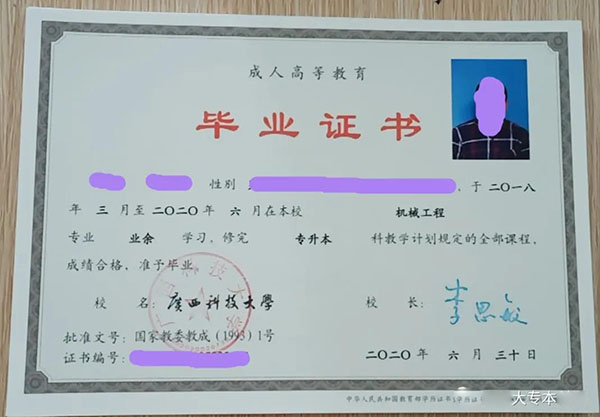 成人高等教育
毕业证书
性别 ，于 二〇一八
年 三 月至 二〇二〇 年 六 月在本校 机械工程
专业 业余 学习，修完 专升本 科教学计划规定的全部课程，
成绩合格，准予毕业。
校 名：广西科技大学 校 长：李思敏
批准文号：国家教委教成（1993）1号
证书编号： 二〇二〇 年 六 月 三十 日
中华人民共和国教育部学历证书
大专本